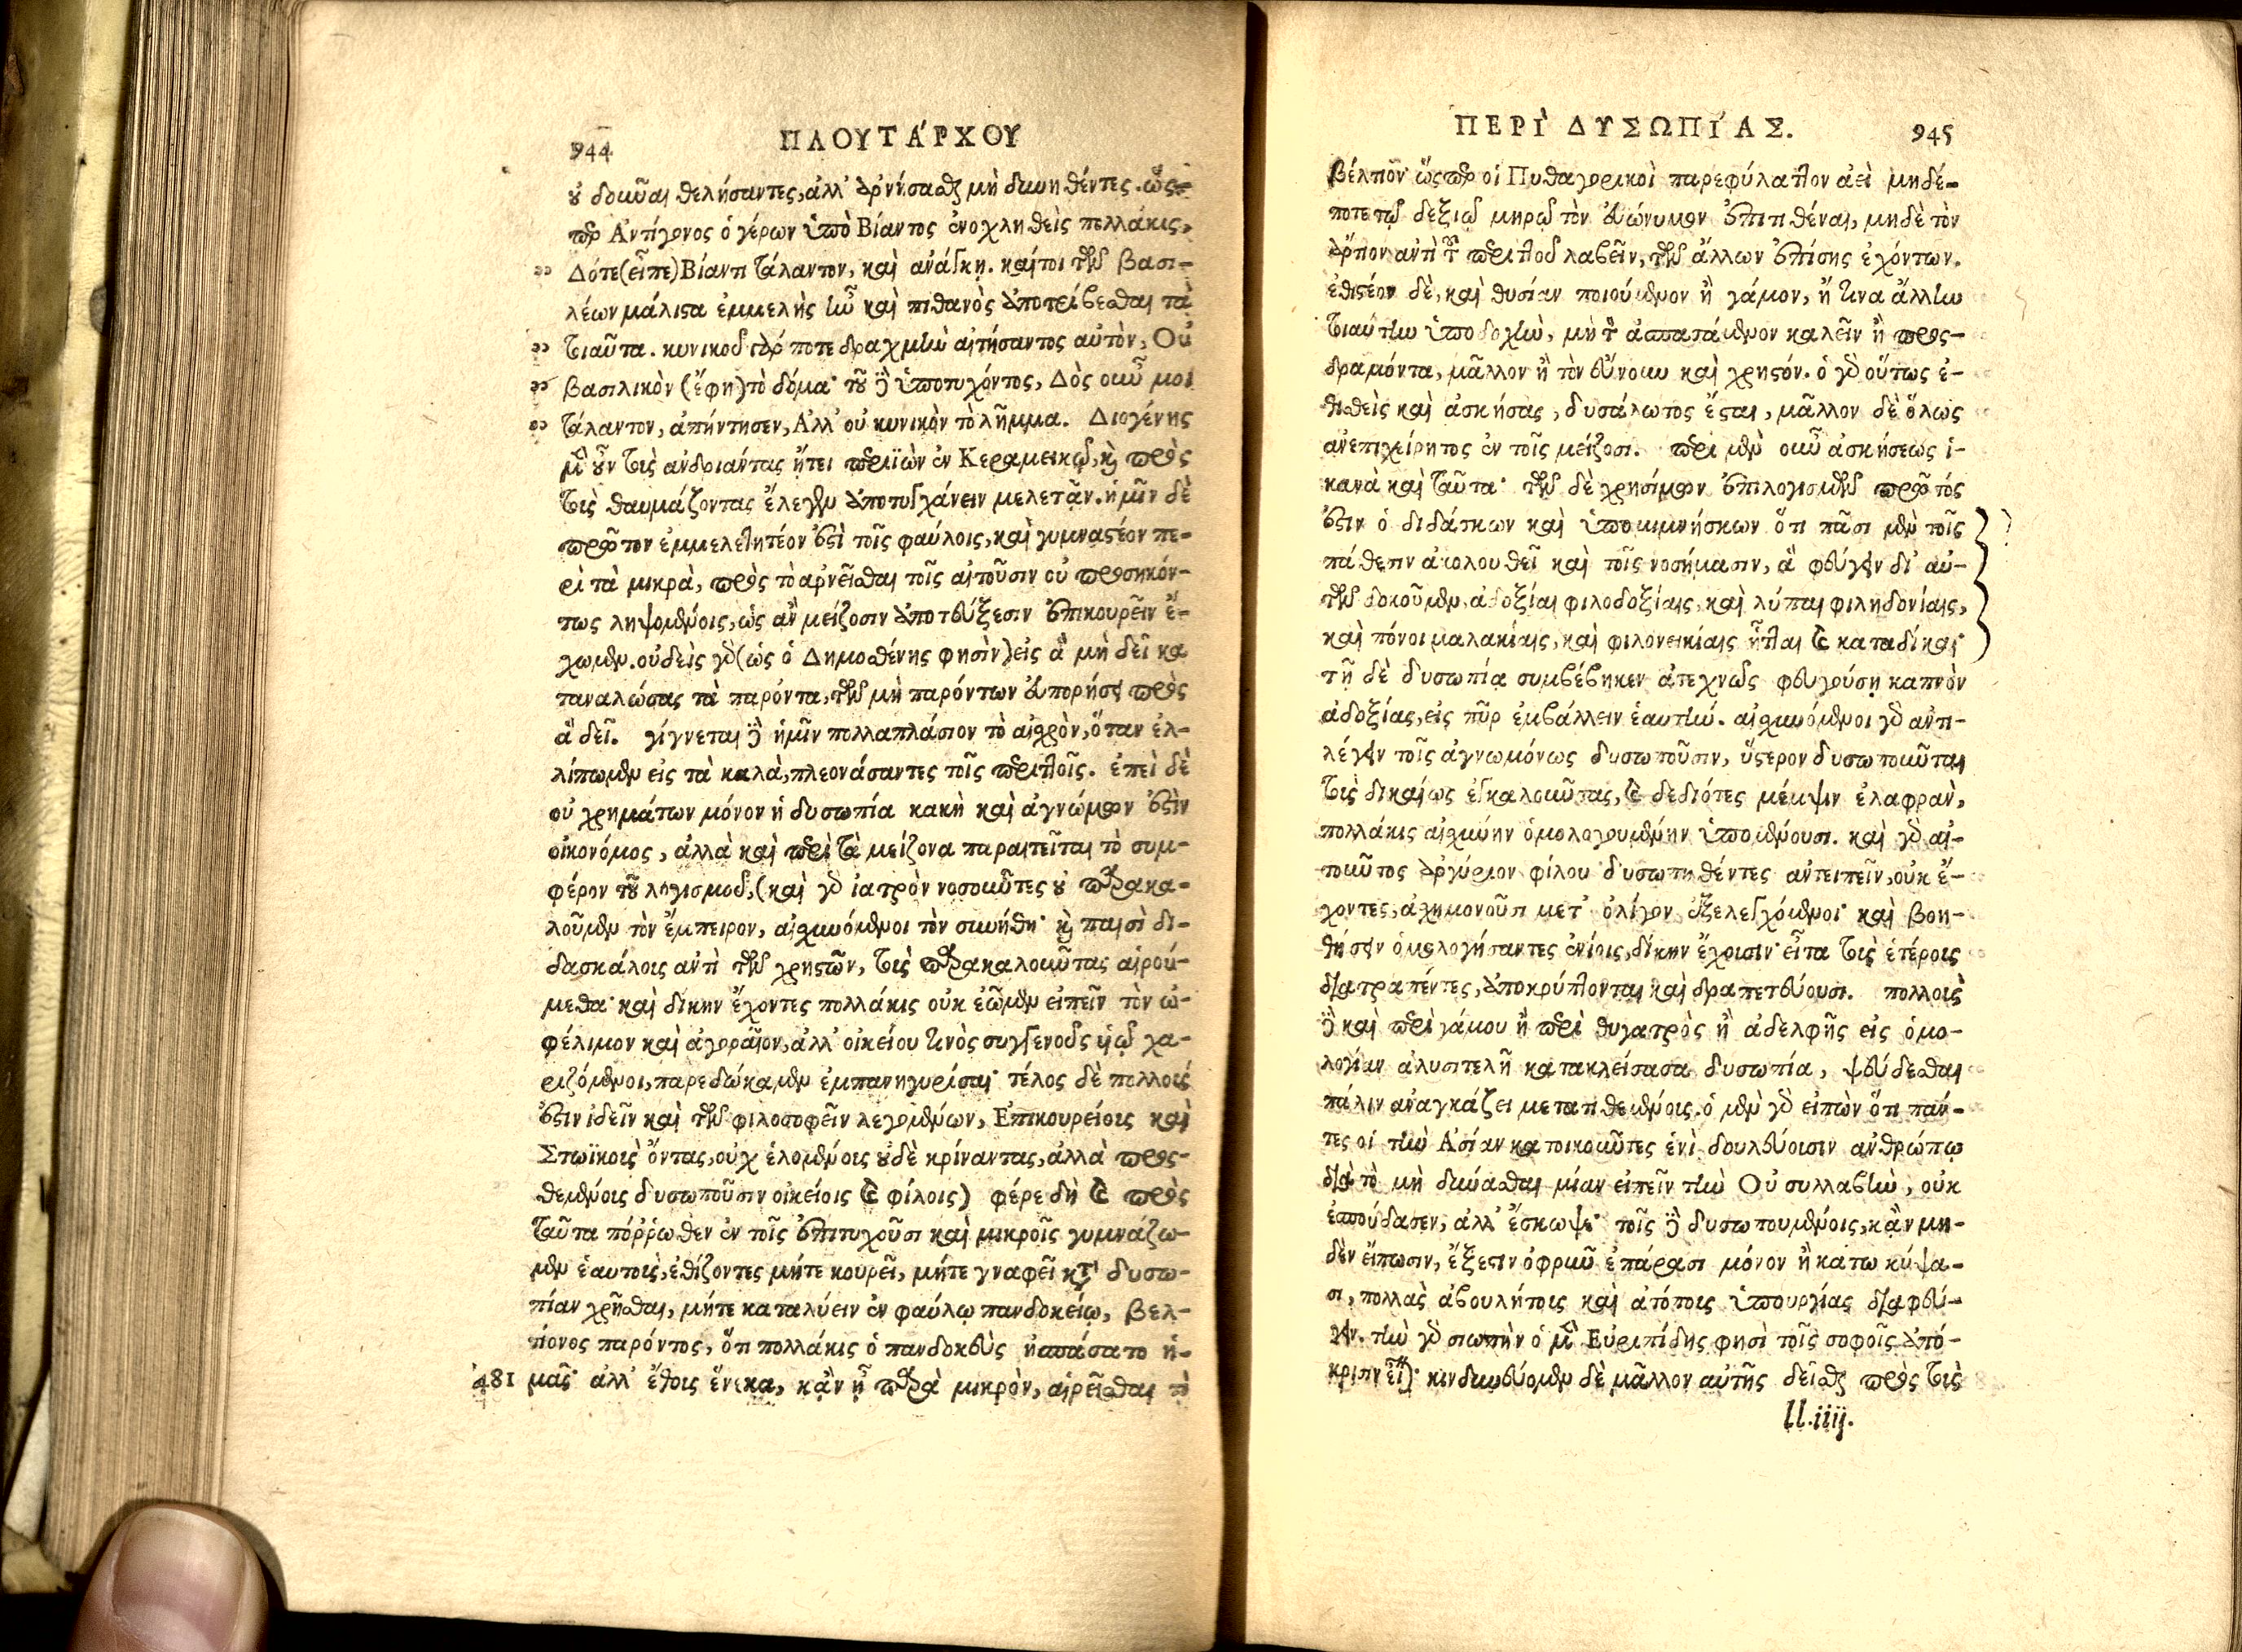 944 ΠΛΟΥΤΑΡΧΟΥ
οὐ δοῦναι θελήσαντες, ἀλλ' ἀρνήσασθαι μὴ δυνηθέντες. ὥς-
περ Ἀντίγονος ὁ γέρων ὑπὸ Βίαντος ἐνοχληθεὶς πολλάκις,
Δότε (εἶπε) Βίαντι τάλαντον, καὶ ἀνάγκη. καίτοι τῶν βασι-
λέων μάλιστα ἐμμελὴς ἦν καὶ πιθανὸς ἀποτρίβεσθαι τὰ
τοιαῦτα. κυνικοῦ γάρ ποτε δραχμὴν αἰτήσαντος αὐτὸν, Οὐ
βασιλικὸν (ἔφη) τὸ δόμα· τοῦ δὲ ὑποτυχόντος, Δὸς οὖν μοι
τάλαντον, ἀπήντησεν, Ἀλλ' οὐ κυνικὸν τὸ λῆμμα. Διογένης
μὲν οὖν τοὺς ἀνδριάντας ᾔτει περιϊὼν ἐν Κεραμεικῷ, καὶ πρὸς
τοὺς θαυμάζοντας ἔλεγεν ἀποτυγχάνειν μελετᾷν. ἡμῖν δὲ
πρῶτον ἐμμελετητέον ἐστὶ τοῖς φαύλοις, καὶ γυμναστέον πε-
ρὶ τὰ μικρὰ, πρὸς τὸ ἀρνεῖσθαι τοῖς αἰτοῦσιν οὐ προσηκόν-
τως ληψομένοις, ὡς ἂν μείζοσιν ἀποτεύξεσιν ἐπικουρεῖν ἔ-
χωμεν. οὐδεὶς γὰρ (ὡς ὁ Δημοσθένης φησὶν) εἰς ἃ μὴ δεῖ κα
ταναλώσας τὰ παρόντα, τῶν μὴ παρόντων εὐπορήσει πρὸς
ἃ δεῖ. γίγνεται δὲ ἡμῖν πολλαπλάσιον τὸ αἰσχρὸν, ὅταν ἐλ-
λίπωμεν εἰς τὰ καλὰ, πλεονάσαντες τοῖς περιττοῖς. ἐπεὶ δὲ
οὐ χρημάτων μόνον ἡ δυσωπία κακὴ καὶ ἀγνώμων ἐστὶν
οἰκονόμος, ἀλλὰ καὶ περὶ τὰ μείζονα παραιτεῖται τὸ συμ-
φέρον τοῦ λογισμοῦ, (καὶ γὰρ ἰατρὸν νοσοῦντες οὐ παρακα-
λοῦμεν τὸν ἔμπειρον, αἰσχυνόμενοι τὸν συνήθη· καὶ παισὶ δι-
δασκάλοις ἀντὶ τῶν χρηστῶν, τοὺς παρακαλοῦντας αἱρού-
μεθα· καὶ δίκην ἔχοντες πολλάκις οὐκ ἐῶμεν εἰπεῖν τὸν ὠ-
φέλιμον καὶ ἀγοραῖον, ἀλλ' οἰκείου τινὸς συγγενοῦς υἱῷ χα-
ριζόμενοι, παρεδώκαμεν ἐμπανηγυρίσαι· τέλος δὲ πολλοὺς
ἐστιν ἰδεῖν καὶ τῶν φιλοσοφεῖν λεγομένων, Ἐπικουρείους καὶ
Στωϊκοὺς ὄντας, οὐχ ἑλομένους οὐδὲ κρίναντας, ἀλλὰ προς-
θεμένους δυσωποῦσιν οἰκείοις καὶ φίλοις) φέρε δὴ καὶ πρὸς
ταῦτα πόῤῥωθεν ἐν τοῖς ἐπιτυχοῦσι καὶ μικροῖς γυμνάζω-
μεν ἑαυτοὺς, ἐθίζοντες μήτε κουρεῖ, μήτε γναφεῖ κατὰ δυσω-
πίαν χρῆσθαι, μήτε καταλύειν ἐν φαύλῳ πανδοκείῳ, βελ-
τίονος παρόντος, ὅτι πολλάκις ὁ πανδοκεὺς ἠσπάσατο ἡ-
481 μᾶς· ἀλλ' ἔθους ἕνεκα, κἂν ᾖ παρὰ μικρὸν, αἱρεῖσθαι τὸ
ΠΕΡῚ ΔΥΣΩΠΊΑΣ. 945
βέλτιον· ὥςπερ οἱ Πυθαγορικοὶ παρεφύλαττον ἀεὶ μηδέ-
ποτε τῷ δεξιῷ μηρῷ τὸν εὐώνυμον ἐπιτιθέναι, μηδὲ τὸν
ἄρτιον ἀντὶ τοῦ περιττοῦ λαβεῖν, τῶν ἄλλων ἐπίσης ἐχόντων.
ἐθιστέον δὲ, καὶ θυσίαν ποιούμενον ἢ γάμον, ἤ τινα ἄλλην
τοιαύτην ὑποδοχὴν, μὴ τὸν ἀσπασάμενον καλεῖν ἢ προς-
δραμόντα, μᾶλλον ἢ τὸν εὔνοιαν καὶ χρηστόν. ὁ γὰρ οὕτως ἐ-
θισθεὶς καὶ ἀσκήσας, δυσάλωτος ἔσται, μᾶλλον δὲ ὅλως
ἀνεπιχείρητος ἐν τοῖς μείζοσι. περὶ μὲν οὖν ἀσκήσεως ἱ-
κανὰ καὶ ταῦτα· τῶν δὲ χρησίμων ἐπιλογισμῶν πρῶτός
ἐστιν ὁ διδάσκων καὶ ὑπομιμνήσκων ὅτι πᾶσι μὲν τοῖς
πάθεσιν ἀκολουθεῖ καὶ τοῖς νοσήμασιν, ἃ φεύγειν δι' αὐ-
τῶν δοκοῦμεν, ἀδοξίαι φιλοδοξίαις, καὶ λύπαι φιληδονίαις,
καὶ πόνοι μαλακίαις, καὶ φιλονεικίαις ἧτται καὶ καταδίκαι·
τῇ δὲ δυσωπίᾳ συμβέβηκεν ἀτεχνῶς φευγούσῃ καπνὸν
ἀδοξίας, εἰς πῦρ ἐμβάλλειν ἑαυτήν. αἰσχυνόμενοι γὰρ ἀντι-
λέγειν τοῖς ἀγνωμόνως δυσωποῦσιν, ὕστερον δυσωποῦνται
τοὺς δικαίως ἐγκαλοῦντας, καὶ δεδιότες μέμψιν ἐλαφρὰν,
πολλάκις αἰσχύνην ὁμολογουμένην ὑπομένουσι. καὶ γὰρ αἰ-
τοῦντος ἀργύριον φίλου δυσωπηθέντες ἀντειπεῖν, οὐκ ἔ-
χοντες, ἀσχημονοῦσι μετ' ὀλίγον ἐξελεγχόμενοι· καὶ βοη-
θήσειν ὁμολογήσαντες ἐνίοις, δίκην ἔχουσιν· εἶτα τοὺς ἑτέρους
διατραπέντες, ἀποκρύπτονται καὶ δραπετεύουσι. πολλοὺς
δὲ καὶ περὶ γάμου ἢ περὶ θυγατρὸς ἢ ἀδελφῆς εἰς ὁμο-
λογίαν ἀλυσιτελῆ κατακλείσασα δυσωπία, ψεύδεσθαι
πάλιν ἀναγκάζει μετατιθεμένους. ὁ μὲν γὰρ εἰπὼν ὅτι πάν-
τες οἱ τὴν Ἀσίαν κατοικοῦντες ἑνὶ δουλεύουσιν ἀνθρώπῳ
διὰ τὸ μὴ δύνασθαι μίαν εἰπεῖν τὴν Οὐ συλλαβὴν, οὐκ
ἐσπούδασεν, ἀλλ' ἔσκωψε· τοῖς δὲ δυσωπουμένοις, κἂν μη-
δὲν εἴπωσιν, ἔξεστιν ὀφρῦν ἐπάρασι μόνον ἢ κάτω κύψα-
σι, πολλὰς ἀβουλήτους καὶ ἀτόπους ὑπουργίας διαφεύ-
γειν. τὴν γὰρ σιωπὴν ὁ μὲν Εὐριπίδης φησὶ τοῖς σοφοῖς ἀπό-
κρισιν εἶναι· κινδυνεύομεν δὲ μᾶλλον αὐτῆς δεῖσθαι πρὸς τοὺς
ll.iiij.